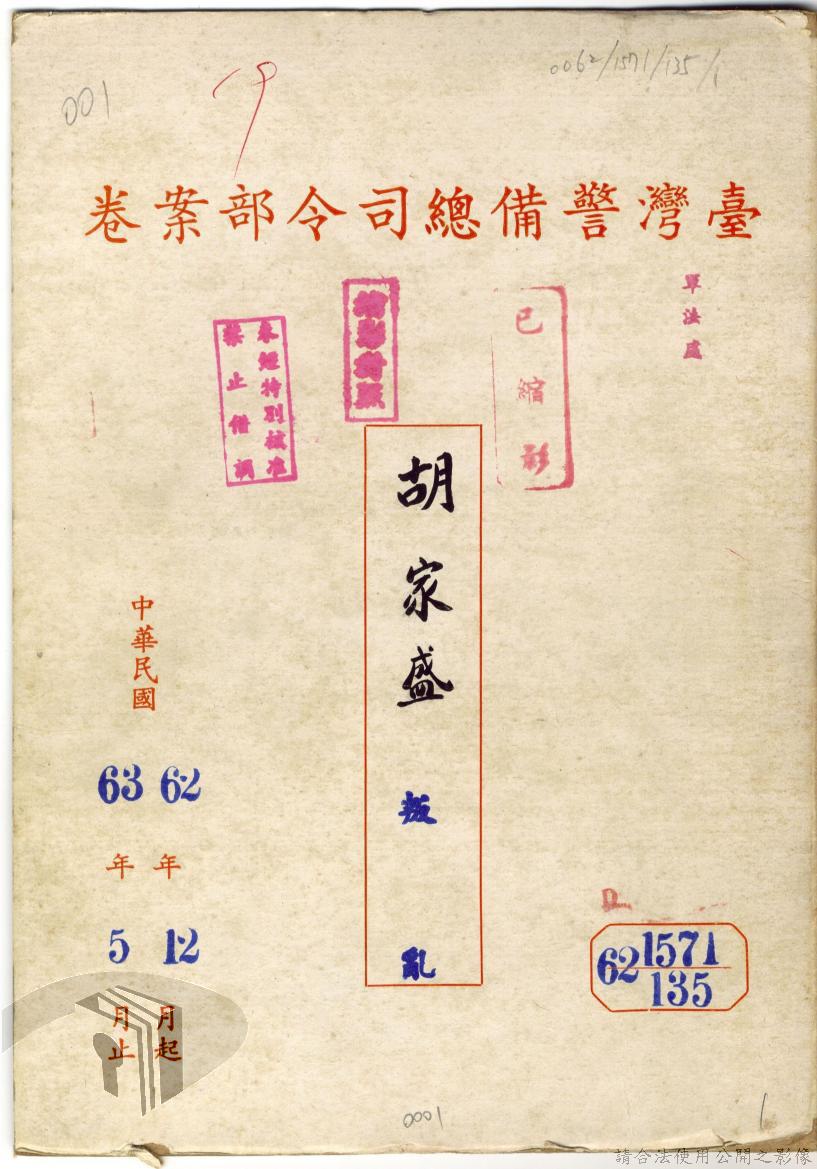 001
0062/1571/135/1
臺灣警備總司令部案卷
軍法處
已縮影
未經特別核准
禁止借調
胡家盛 叛亂
中華民國
62年12月起
63年5月止
62 1571
135
0001
1
請合法使用公開之影像